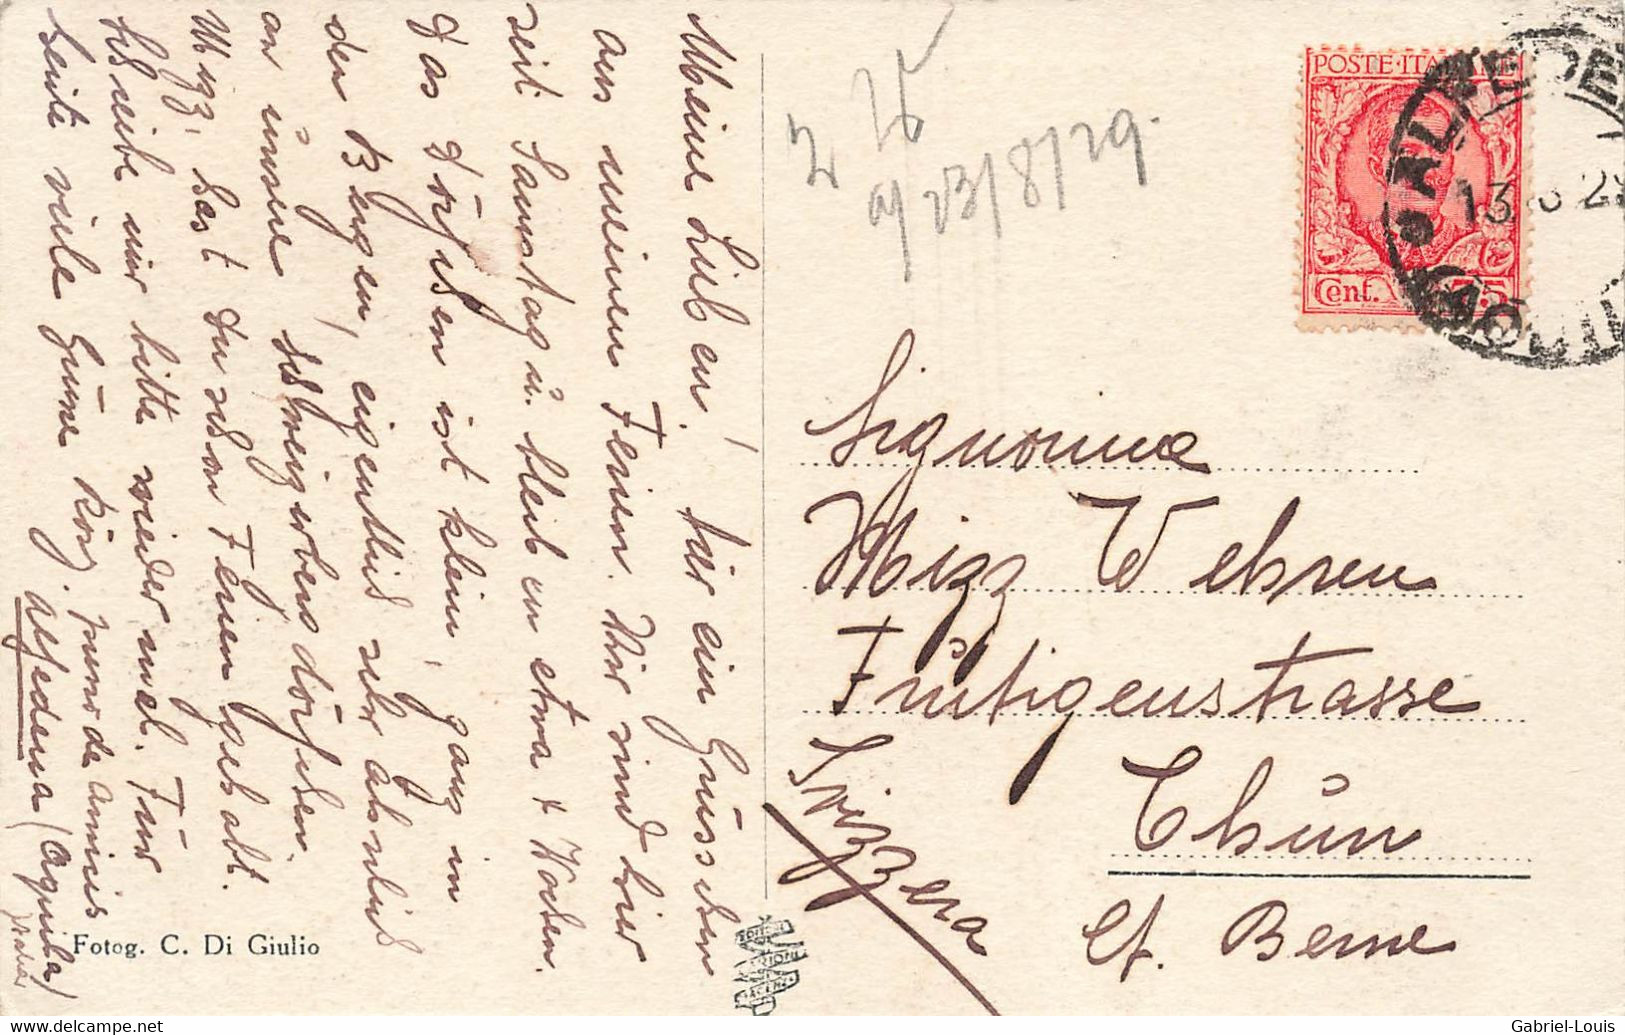 Meine Lieben! Hier ein Grüsschen
aus meinen Ferien. Wir sind hier
seit Samstag u. bleiben etwa 4 Wochen.
Das Dörfchen ist klein, ganz in
den Bergen, eigentlich sehr ähnlich
an unsere Schweizerbergdörfchen.
Mizz, hast du schon Ferien gehabt.
Schreibe mir bitte wieder mal. Für
heute viele Grüsse
Alfedena (Aquila)
Italia
Fotog. C. Di Giulio
POSTE·ITALIANE
Cent. 75
ALFEDENA
13 8 29
23/8/29.
Signorina
Mizz Wehren
Frutigenstrasse
Thun
Ct. Berne
Svizzera
www.delcampe.net
Gabriel-Louis